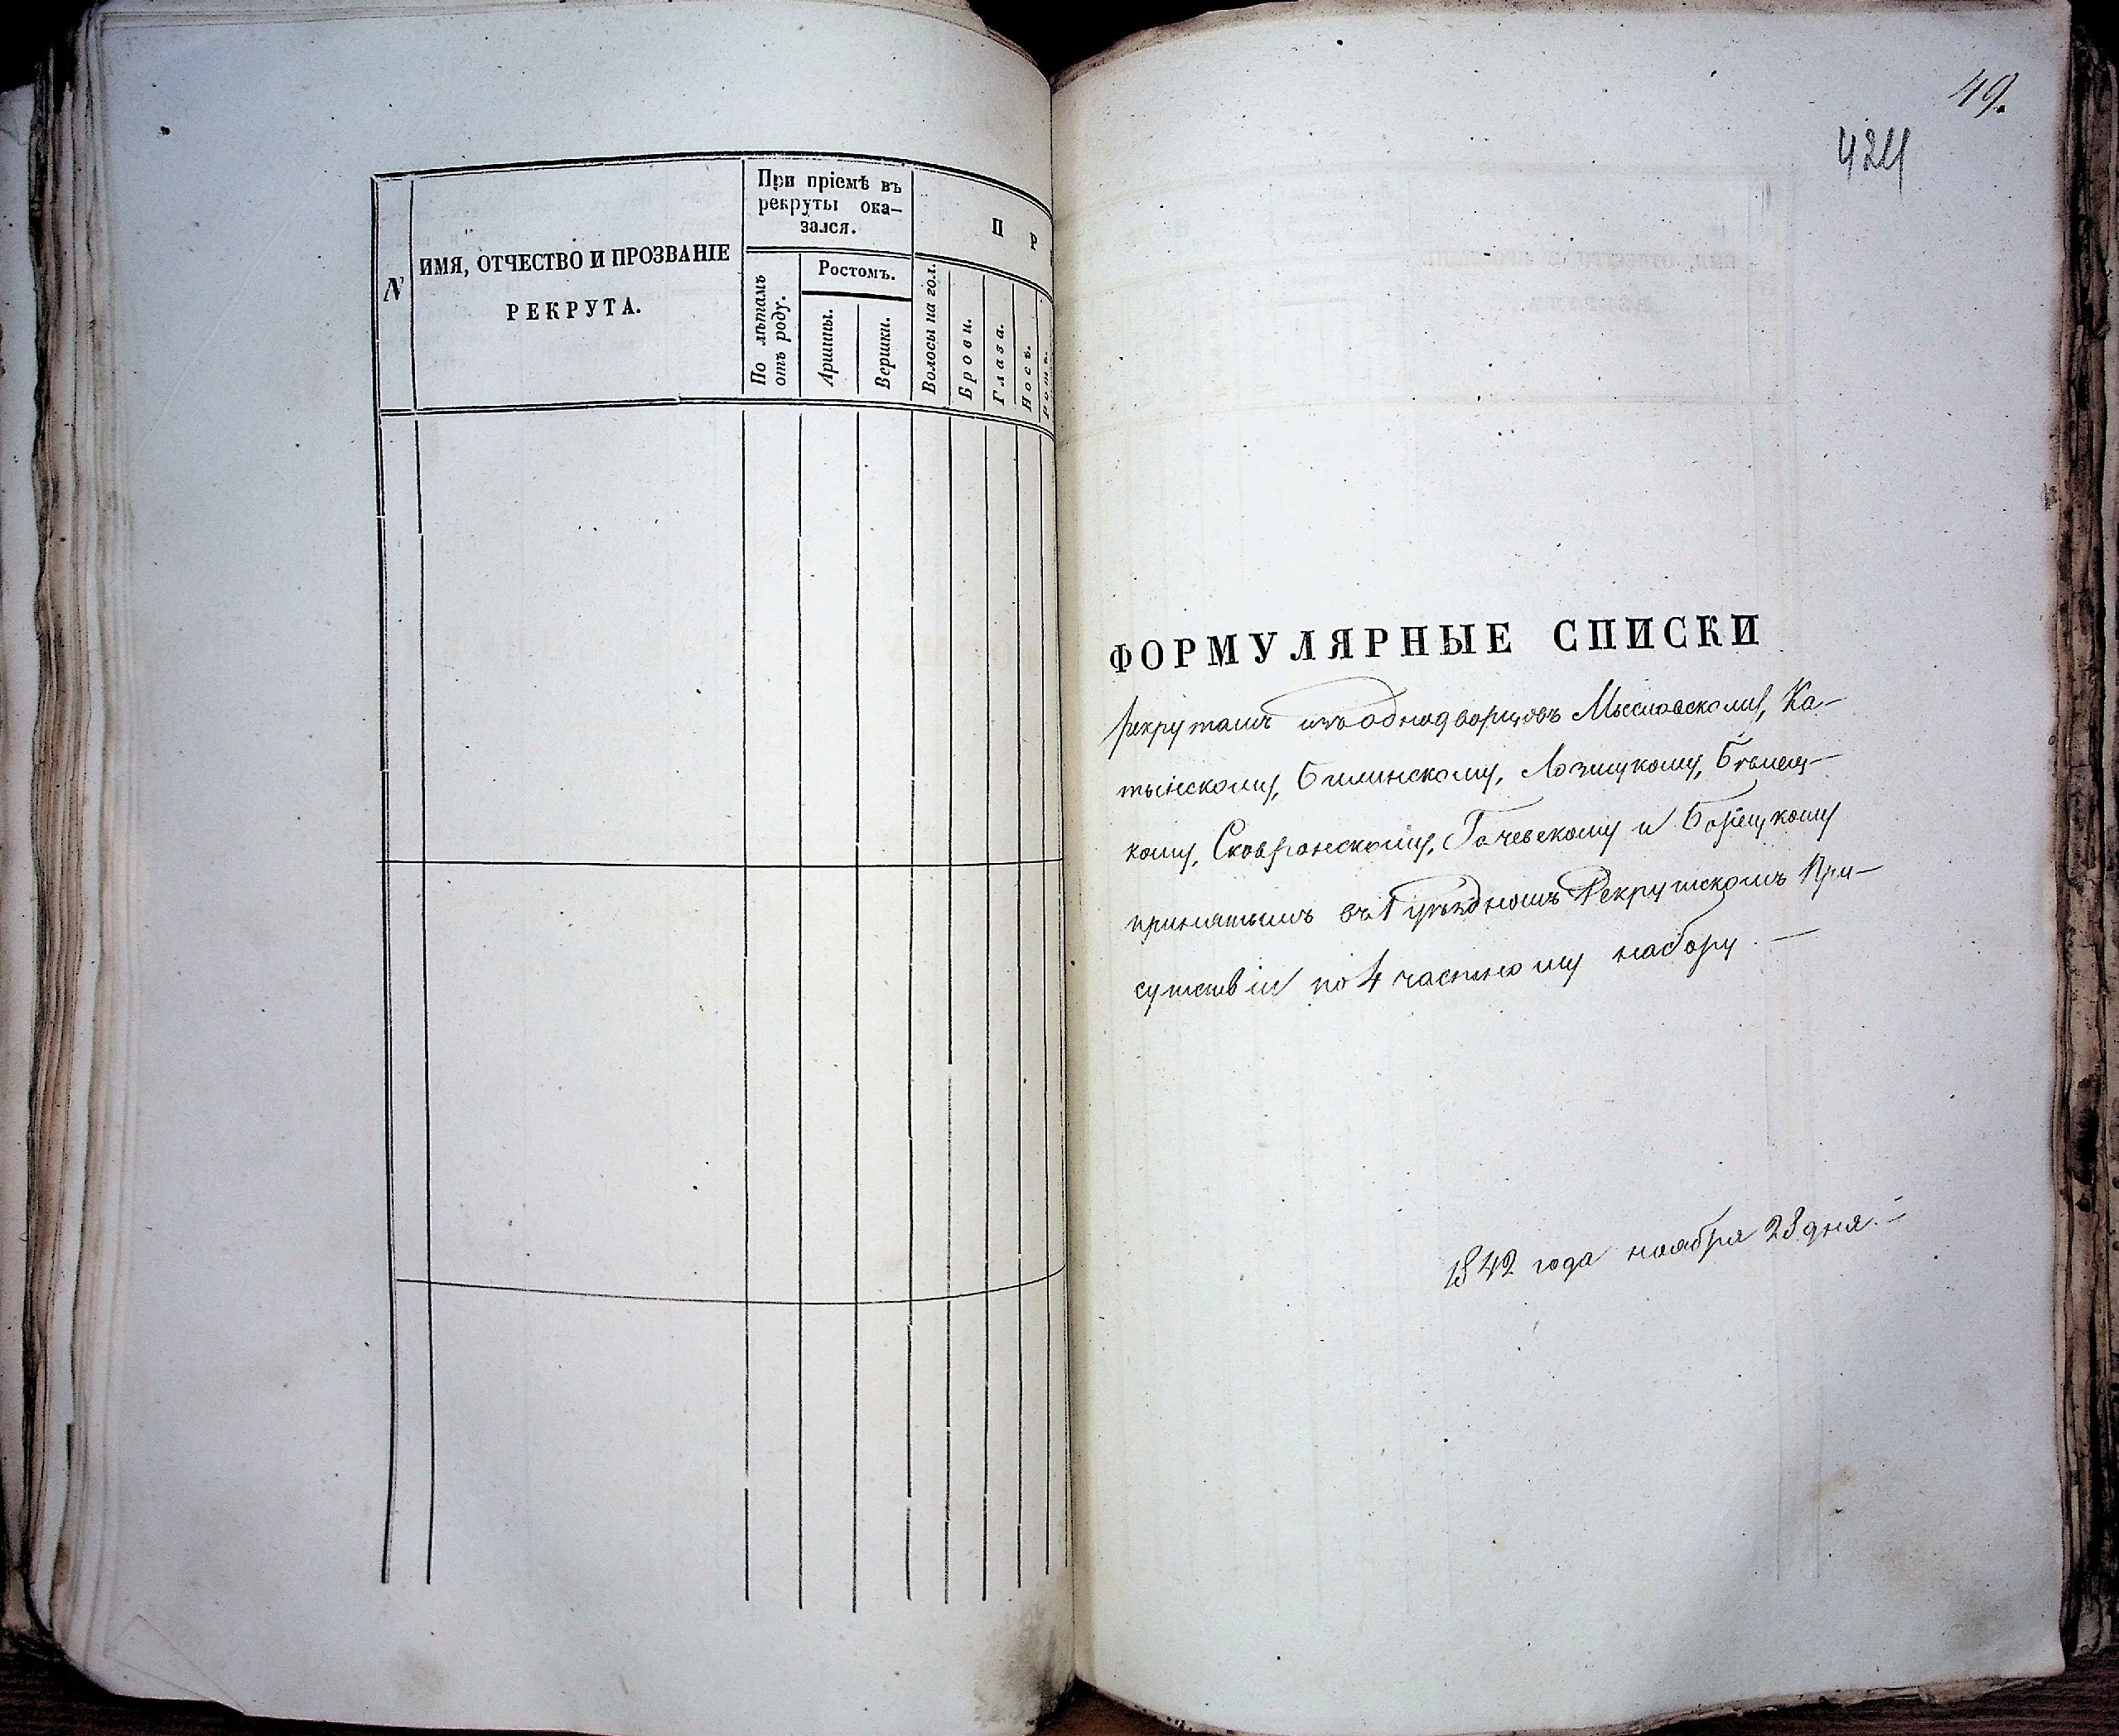 N
ИМЯ, ОТЧЕСТВО И ПРОЗВАНІЕ
РЕКРУТА.
При пріемѣ въ
рекруты ока–
зался.
По лѣтамъ
отъ роду.
Ростомъ.
Аршины.
Вершки.
П Р
Волосы на гол.
Брови.
Глаза.
Носъ.
Ротъ.
49.
424
ФОРМУЛЯРНЫЕ СПИСКИ
рекрутамъ изъ однодворцовъ Мысловскому, Ка–
тынскому, Билинскому, Лозицкому,
кому, Сковронскому, Гочевскому и Борецкому
принятымъ въ уѣздномъ Рекрутскомъ При–
сутствіи по 4 частному набору. —
1842 года ноября 23 дня. —